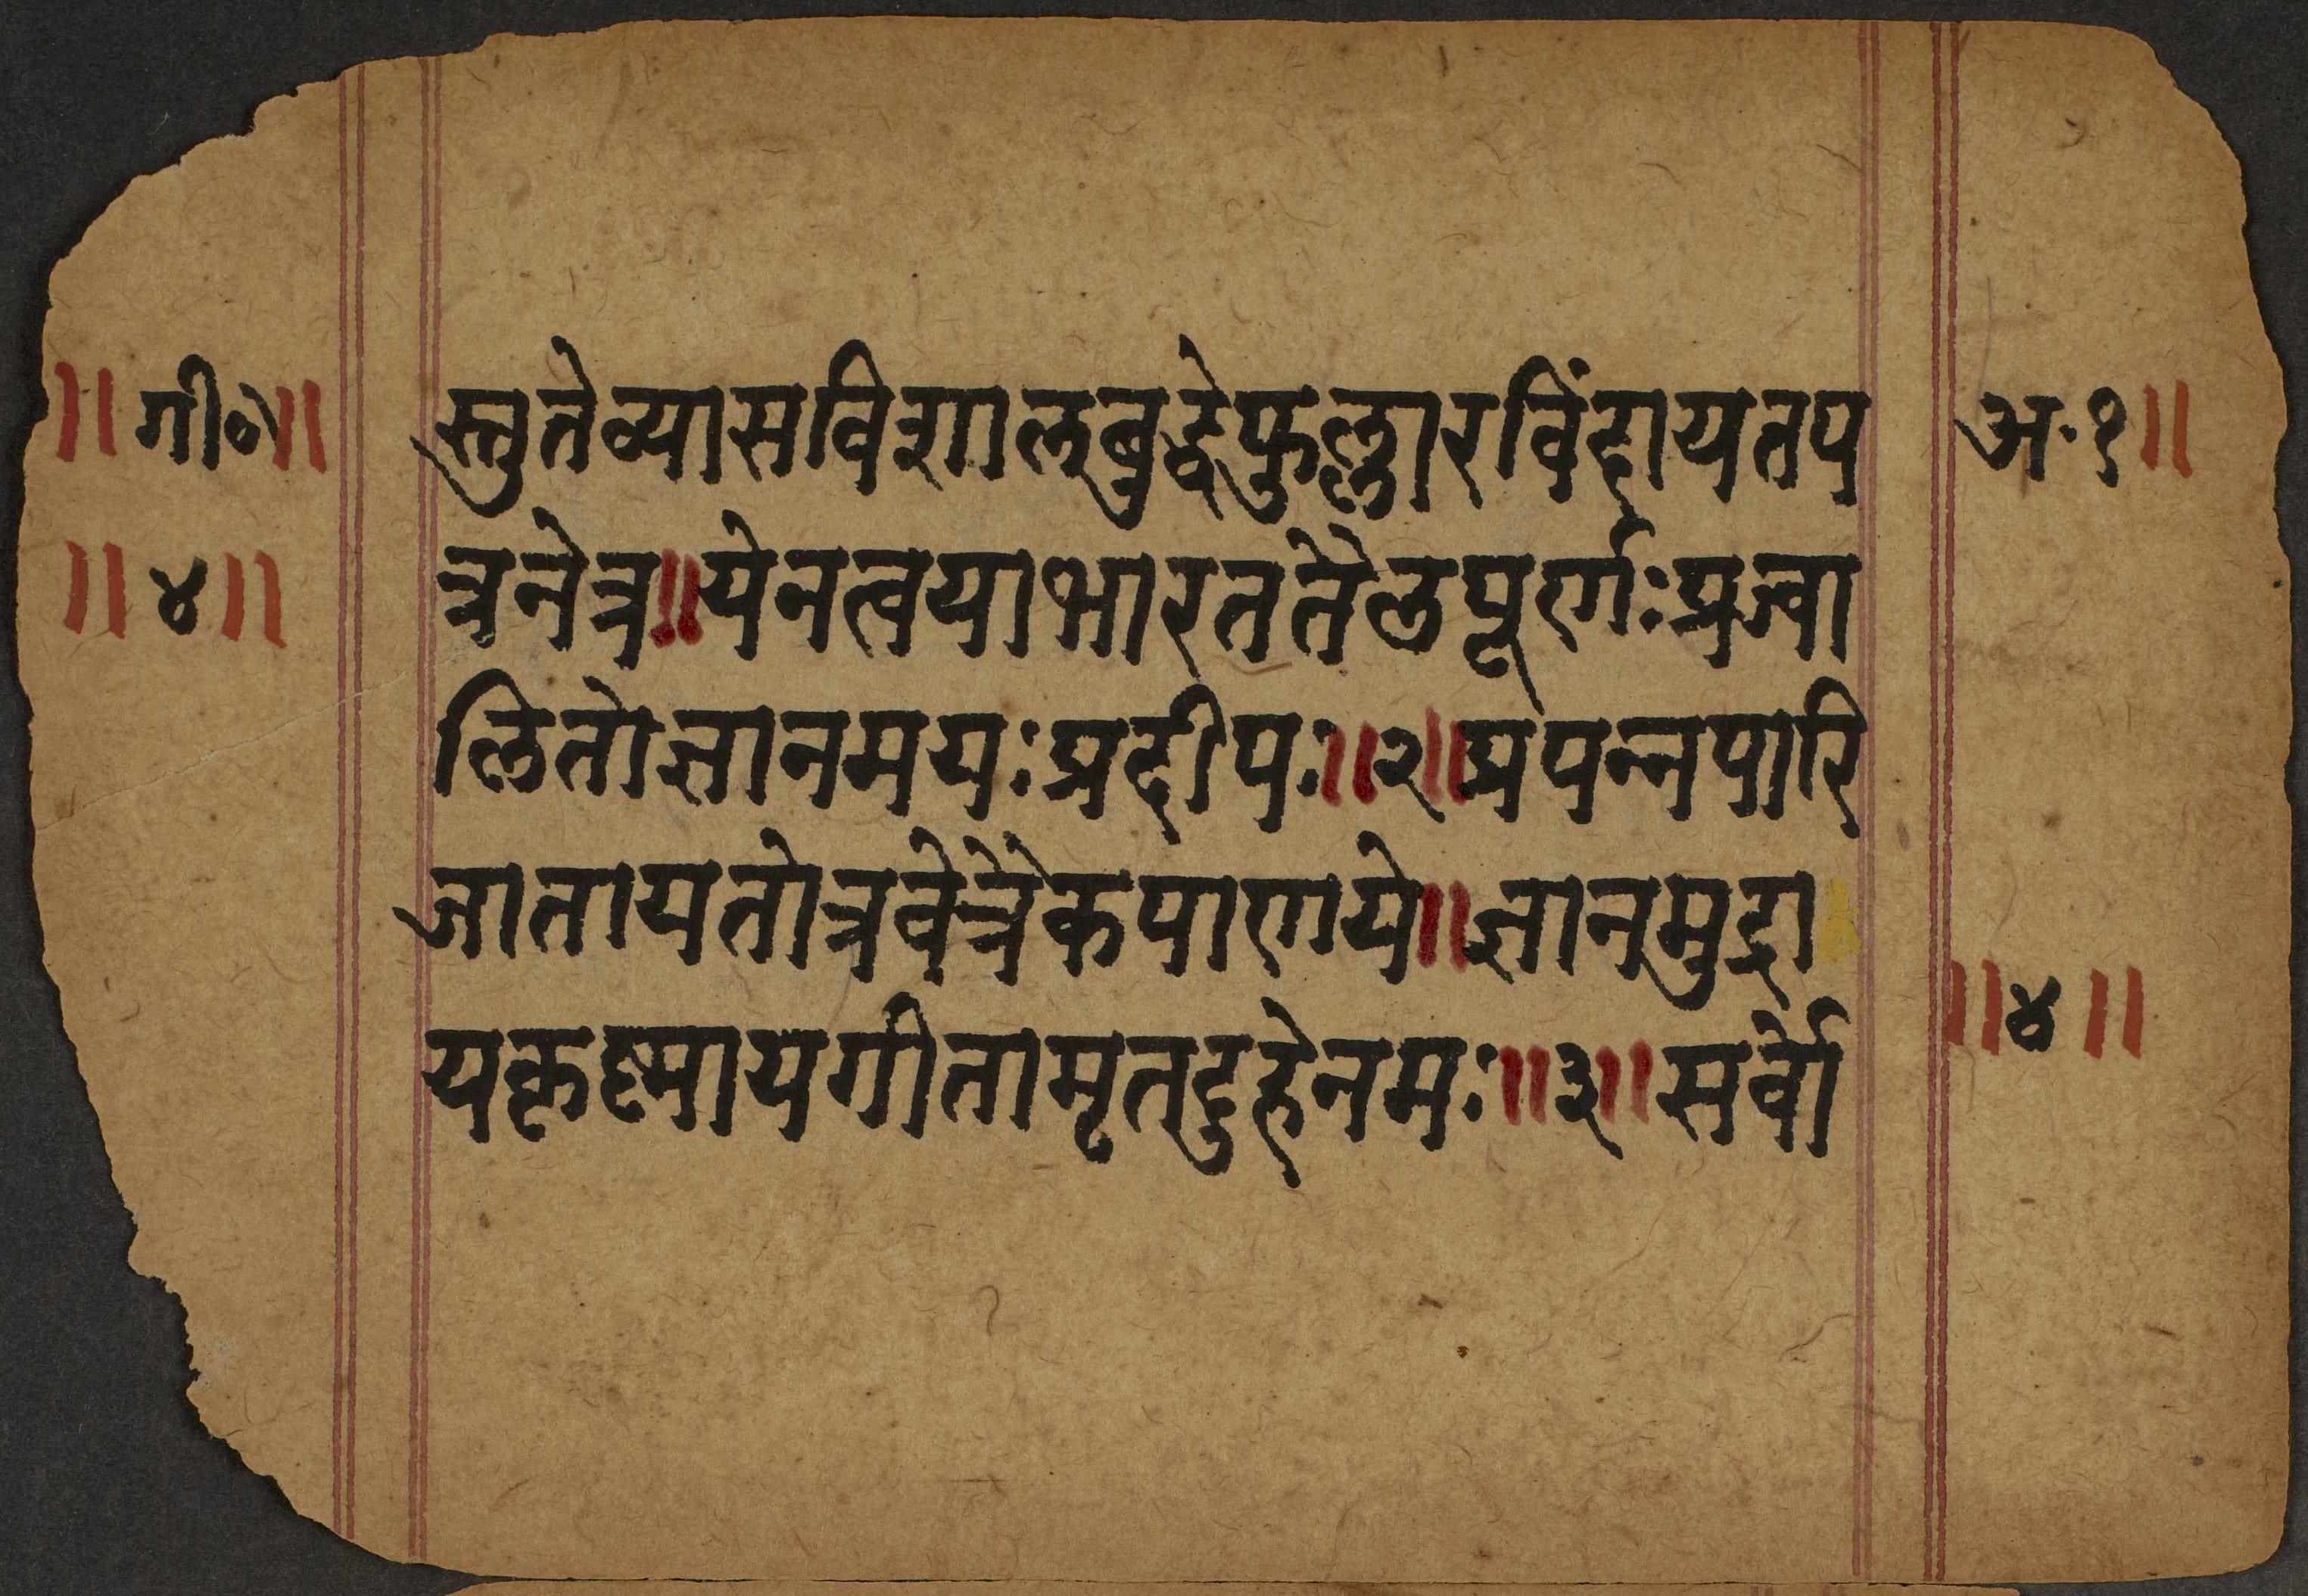 ॥गी०॥ स्तुतेव्यासविशालबुद्धेफुल्लारविंदायतप अ॰१॥
॥४॥ त्रनेत्र॥येनत्वयाभारततैलपूर्णःप्रज्वा
लितोज्ञानमयःप्रदीपः॥२॥प्रपन्नपारि
जातायतोत्रवेत्रैकपाणये॥ज्ञानमुद्रा
यकृष्णायगीतामृतदुहेनमः॥३॥सर्वो
॥४॥